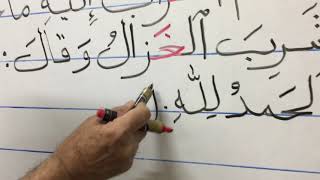 إليه ماء
شَرِبَ الْغَزالُ وَقالَ:
الْحَمْدُ لِلّٰهِ.